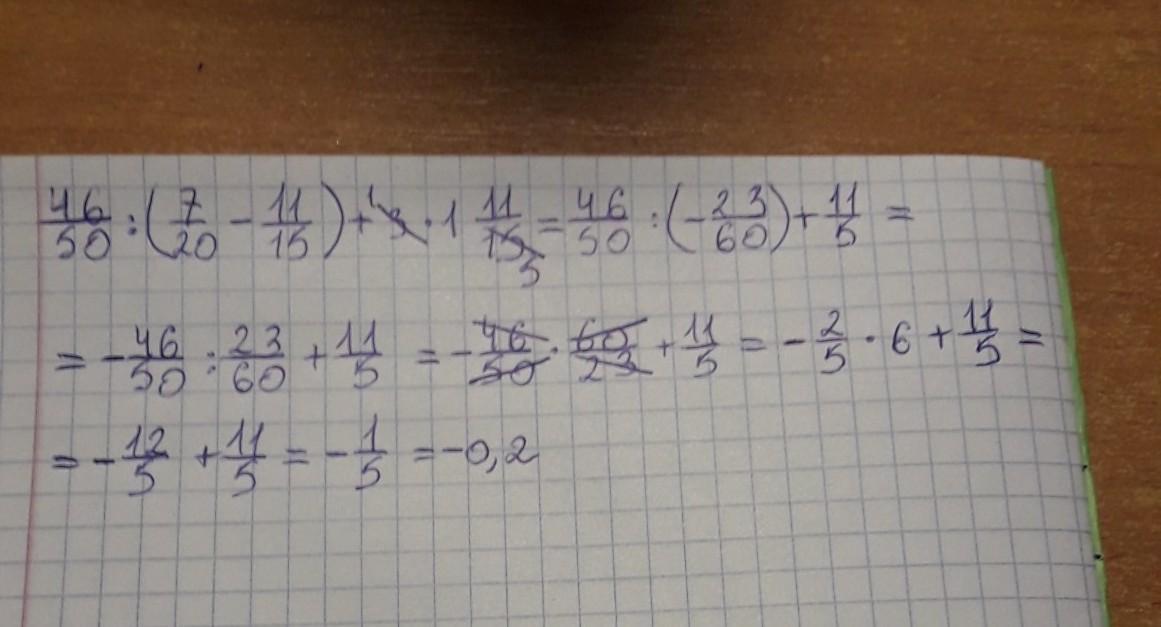 46/50 : (7/20 - 11/15) + 3̶ 1 · 1 11/1̶5̶ 5 = 46/50 : (-23/60) + 11/5 =
= -46/50 : 23/60 + 11/5 = -4̶6̶/5̶0̶ · 6̶0̶/2̶3̶ + 11/5 = -2/5 · 6 + 11/5 =
= -12/5 + 11/5 = -1/5 = -0,2